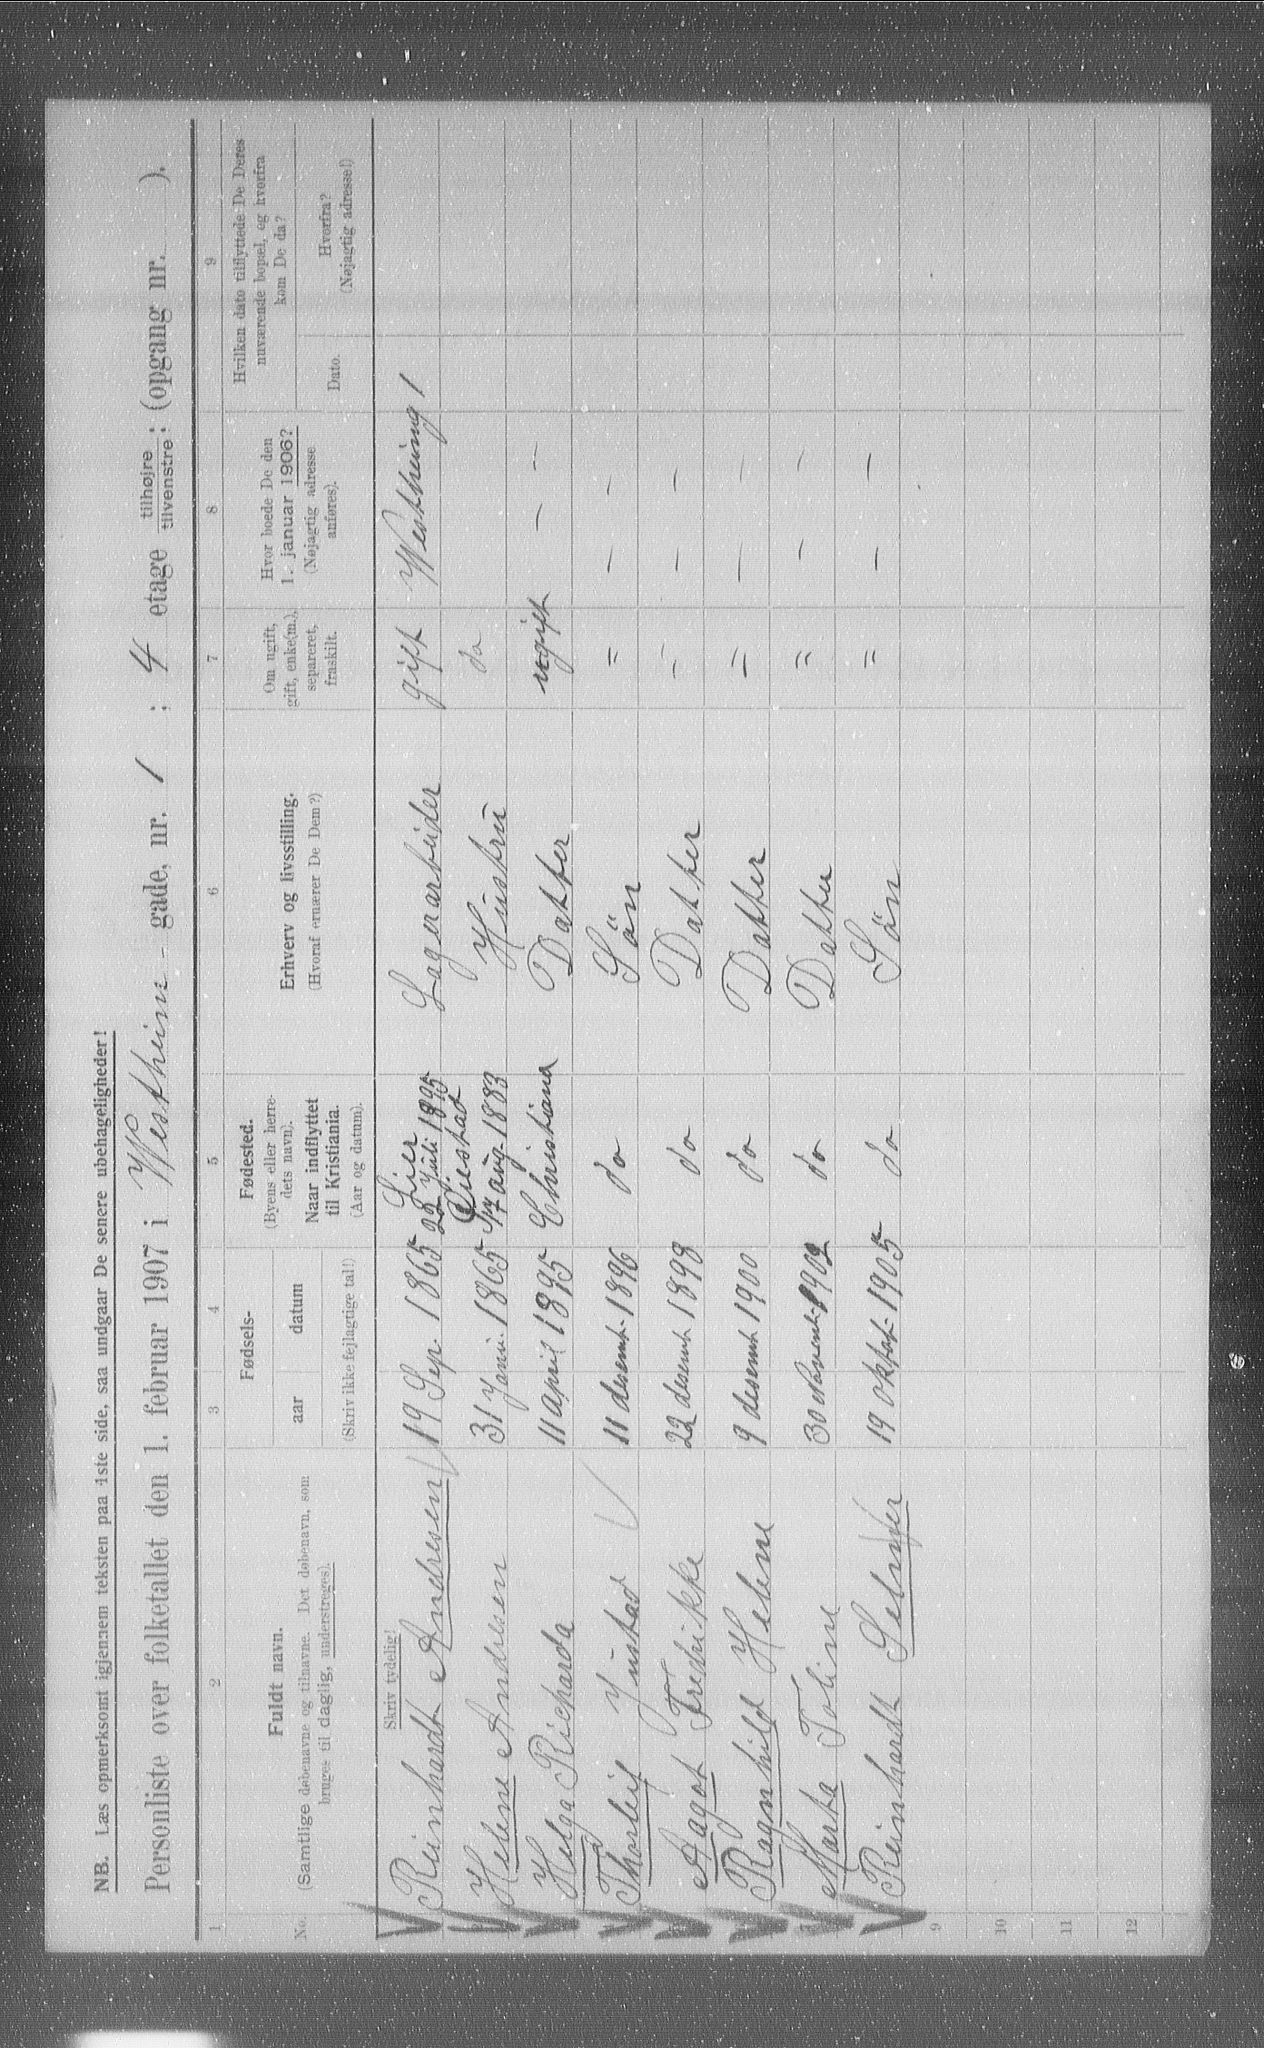 NB. Læs opmerksomt igjennem teksten paa 1ste side, saa undgaar De senere ubehageligheder!
Personliste over folketallet den 1. februar 1907 i Westheim- gade, nr. 1 ; 4 etage tilhøjre/tilvenstre: (opgang nr. ).
1 2 3 4 5 6 7 8 9
No. Fuldt navn. (Samtlige døbenavne og tilnavne. Det døbenavn, som bruges til daglig, understreges). Fødsels- aar datum (Skriv ikke fejlagtige tal!) Fødested. (Byens eller herredets navn). Naar indflyttet til Kristiania. (Aar og datum). Erhverv og livsstilling. (Hvoraf ernærer De Dem?) Om ugift, gift, enke(m.), separeret, fraskilt. Hvor boede De den 1. januar 1906? (Nøjagtig adresse anføres). Hvilken dato tilflyttede De Deres nuværende bopæl, og hvorfra kom De da? Dato. Hvorfra? (Nøjagtig adresse!)
Skriv tydelig!
Reinhardt Andresen 19 Sep. 1865 Lier 22 Juli 1895 Lagerarbeider gift Westheimg 1
Helene Andresen 31 Janu. 1865 17 aug. 1883 Hustru do
Helga Richarda 11 april 1895 Christiana Datter ugift — —
Thorleif Justad 11 desemb. 1896 do Sön = — —
Aagot Fredrikke 22 desemb 1898 do Datter = — —
Ragnhild Helene 9 desemb 1900 do Datter = — —
Marta Toline 30 Novemb. 1902 do Datter = — —
Reinhardt 19 oktob. 1905 do Sön = — —
9
10
11
12